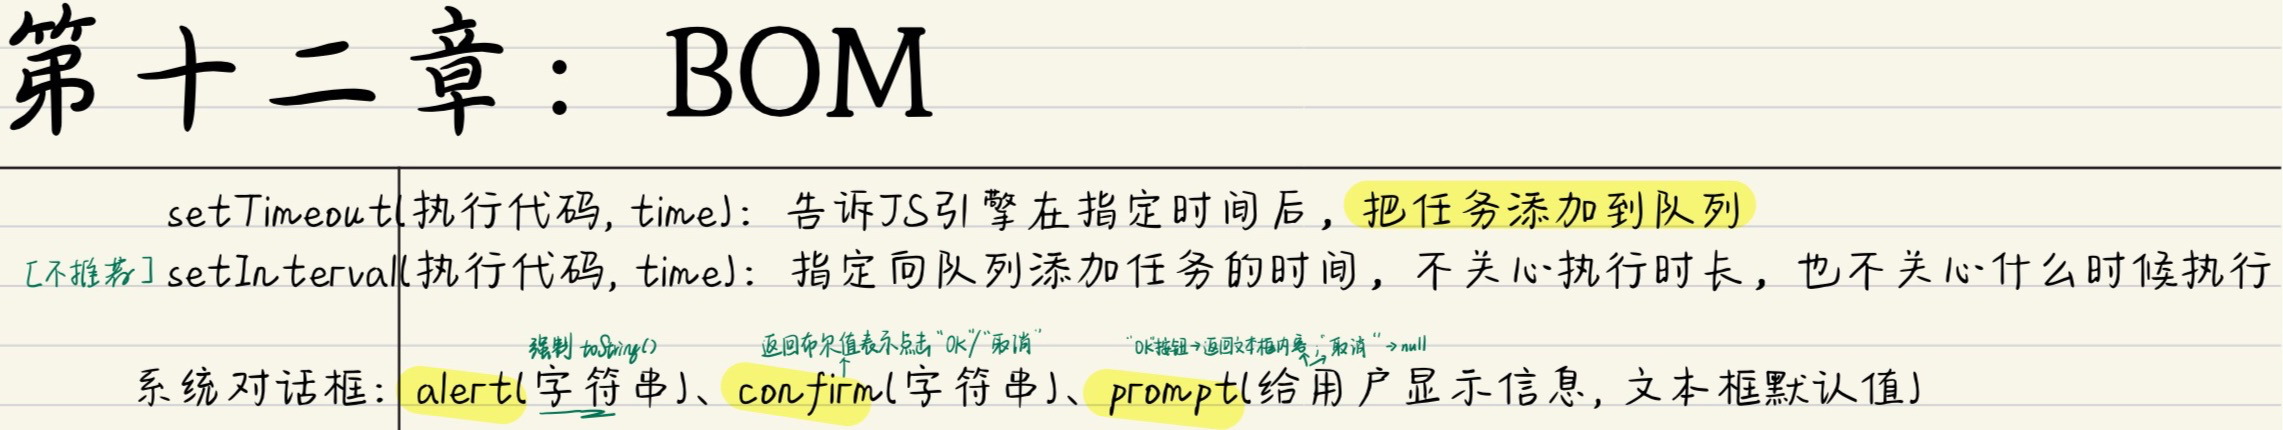 第十二章：BOM
setTimeout(执行代码, time)：告诉JS引擎在指定时间后，把任务添加到队列
[不推荐] setInterval(执行代码, time)：指定向队列添加任务的时间，不关心执行时长，也不关心什么时候执行
强制 toString() 返回布尔值表示点击“OK”/“取消” “OK”按钮→返回文本框内容；“取消”→null
系统对话框：alert(字符串)、confirm(字符串)、prompt(给用户显示信息, 文本框默认值)